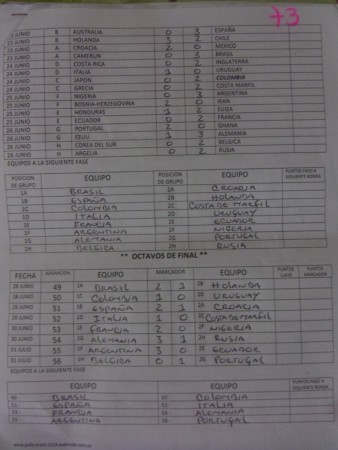 73
23 JUNIO B AUSTRALIA 0 3 ESPAÑA
23 JUNIO B HOLANDA 3 2 CHILE
23 JUNIO A CROACIA 2 0 MEXICO
23 JUNIO A CAMERUN 0 2 BRASIL
24 JUNIO D COSTA RICA 0 2 INGLATERRA
24 JUNIO D ITALIA 1 0 URUGUAY
24 JUNIO C JAPON 0 2 COLOMBIA
24 JUNIO C GRECIA 0 2 COSTA MARFIL
25 JUNIO F NIGERIA 0 3 ARGENTINA
25 JUNIO F BOSNIA-HERZEGOVINA 2 0 IRAN
25 JUNIO E HONDURAS 1 2 SUIZA
25 JUNIO E ECUADOR 0 2 FRANCIA
26 JUNIO G PORTUGAL 2 0 GHANA
26 JUNIO G EEUU 1 3 ALEMANIA
26 JUNIO H COREA DEL SUR 0 2 BELGICA
26 JUNIO H ARGELIA 0 2 RUSIA
EQUIPOS A LA SIGUIENTE FASE
POSICION DE GRUPO EQUIPO POSICION DE GRUPO EQUIPO PUNTOS PASO A SIGUIENTE RONDA
1A BRASIL 2A CROACIA
1B ESPAÑA 2B HOLANDA
1C COLOMBIA 2C COSTA DE MARFIL
1D ITALIA 2D URUGUAY
1E FRANCIA 2E ECUADOR
1F ARGENTINA 2F NIGERIA
1G ALEMANIA 2G PORTUGAL
1H BELGICA 2H RUSIA
** OCTAVOS DE FINAL **
FECHA EQUIPO MARCADOR EQUIPO PUNTOS PUNTOS MARCADOR
28 JUNIO 49 1A BRASIL 2 1 2B HOLANDA
28 JUNIO 50 1C COLOMBIA 1 0 2D URUGUAY
29 JUNIO 51 1B ESPAÑA 2 1 2A CROACIA
29 JUNIO 52 1D ITALIA 1 0 2C COSTA DE MARFIL
30 JUNIO 53 1E FRANCIA 2 0 2F NIGERIA
30 JUNIO 54 1G ALEMANIA 3 1 2H RUSIA
01 JULIO 55 1F ARGENTINA 3 0 2E ECUADOR
01 JULIO 56 1H BELGICA 0 1 2G PORTUGAL
EQUIPOS A LA SIGUIENTE FASE
EQUIPO EQUIPO PUNTOS PASO A SIGUIENTE RONDA
BRASIL COLOMBIA
ESPAÑA ITALIA
FRANCIA ALEMANIA
ARGENTINA PORTUGAL